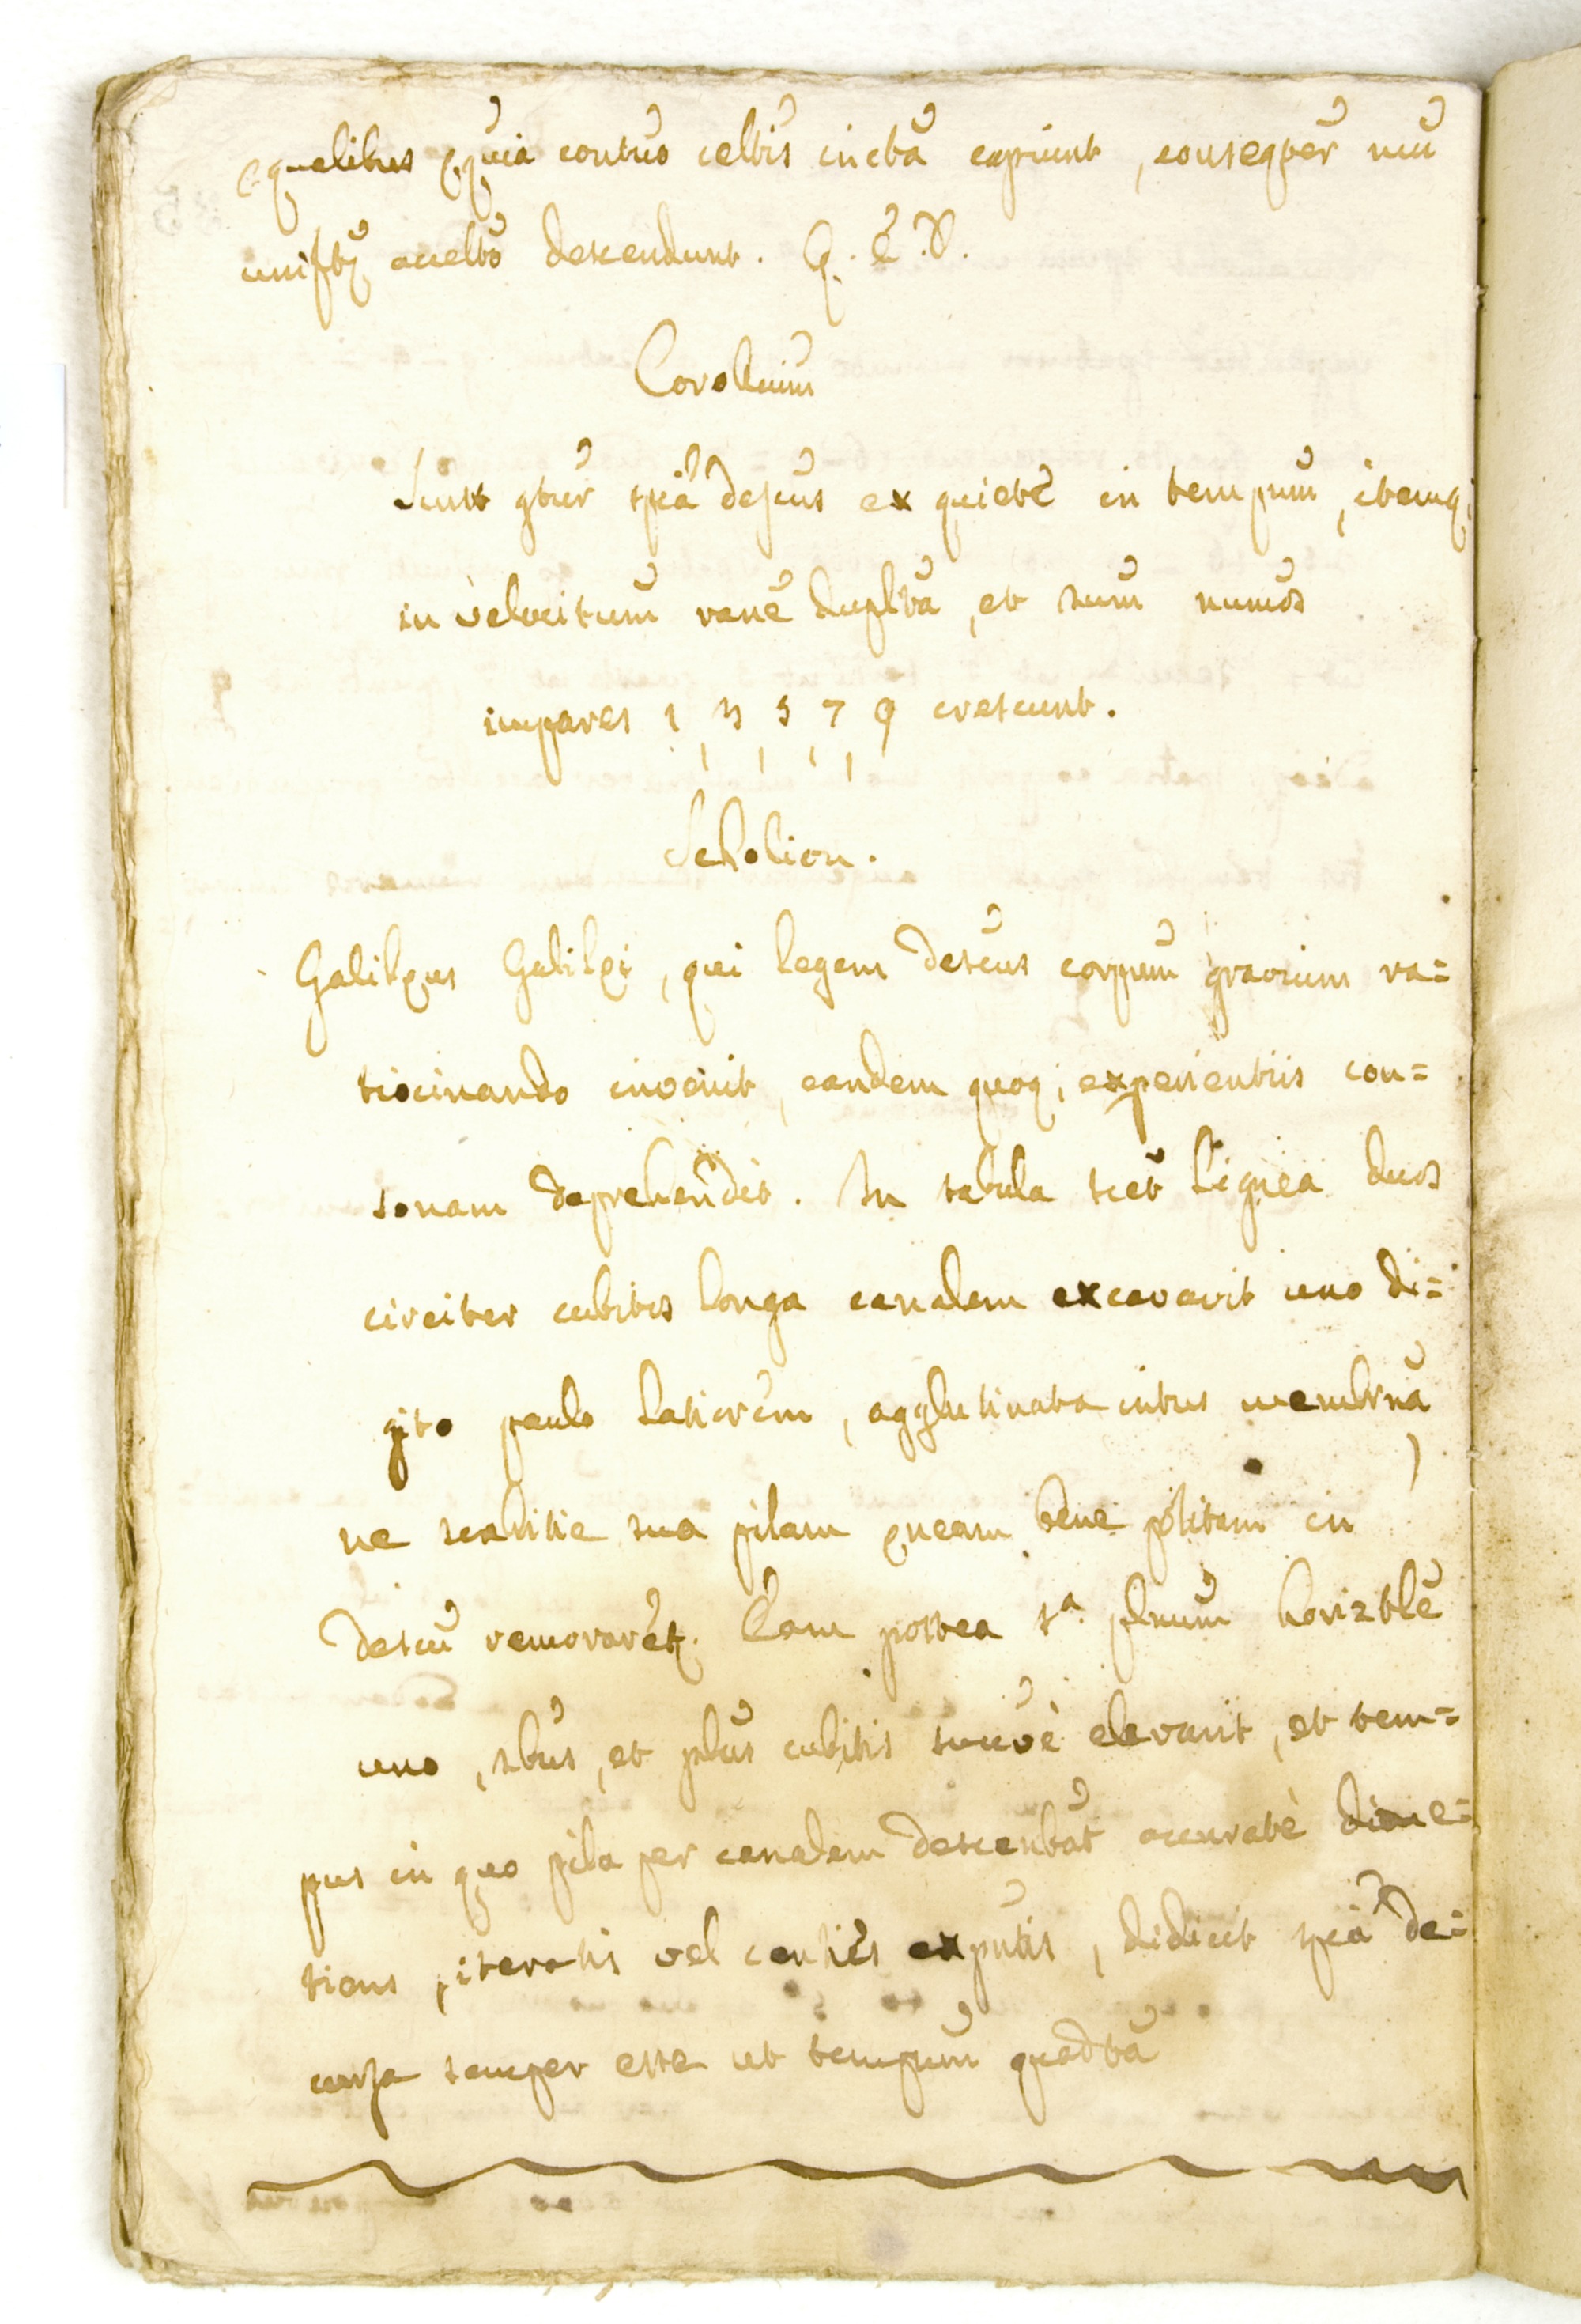 ęqualibus ęquia contuo celtis incta capiunt, conseqter mu
unifte acceltо descendunt. Q. E. D.
Corollium
Sunt gtur spia descus ex quiete in tempum, itemq;
in velocitum rane duplta, et sum numos
impares 1, 3, 5, 7, 9 crescunt.
Scholion.
Galilęus Galilęi, qui legem descus corpum gravium ra=
tiocinando invenit, eandem quoq; experientiis con=
sonam deprehendit. In tabula scet lignea duos
circiter cubitos longa canalem excavavit uno di=
gito paulo latiorem, agglutinata intus membrna,
ne scabritie sua pilam ęneam bene politam in
descu remoraret. Eam postea sa. plnum horiztle
uno, 2bus, et plus cubitis succve elevavit, et tem=
pus in quo pila per canalem descenbat accuratè dime=
tiens, iteratis vel centies exputis, didicit spia de=
cursa semper esse ut tempum quadta